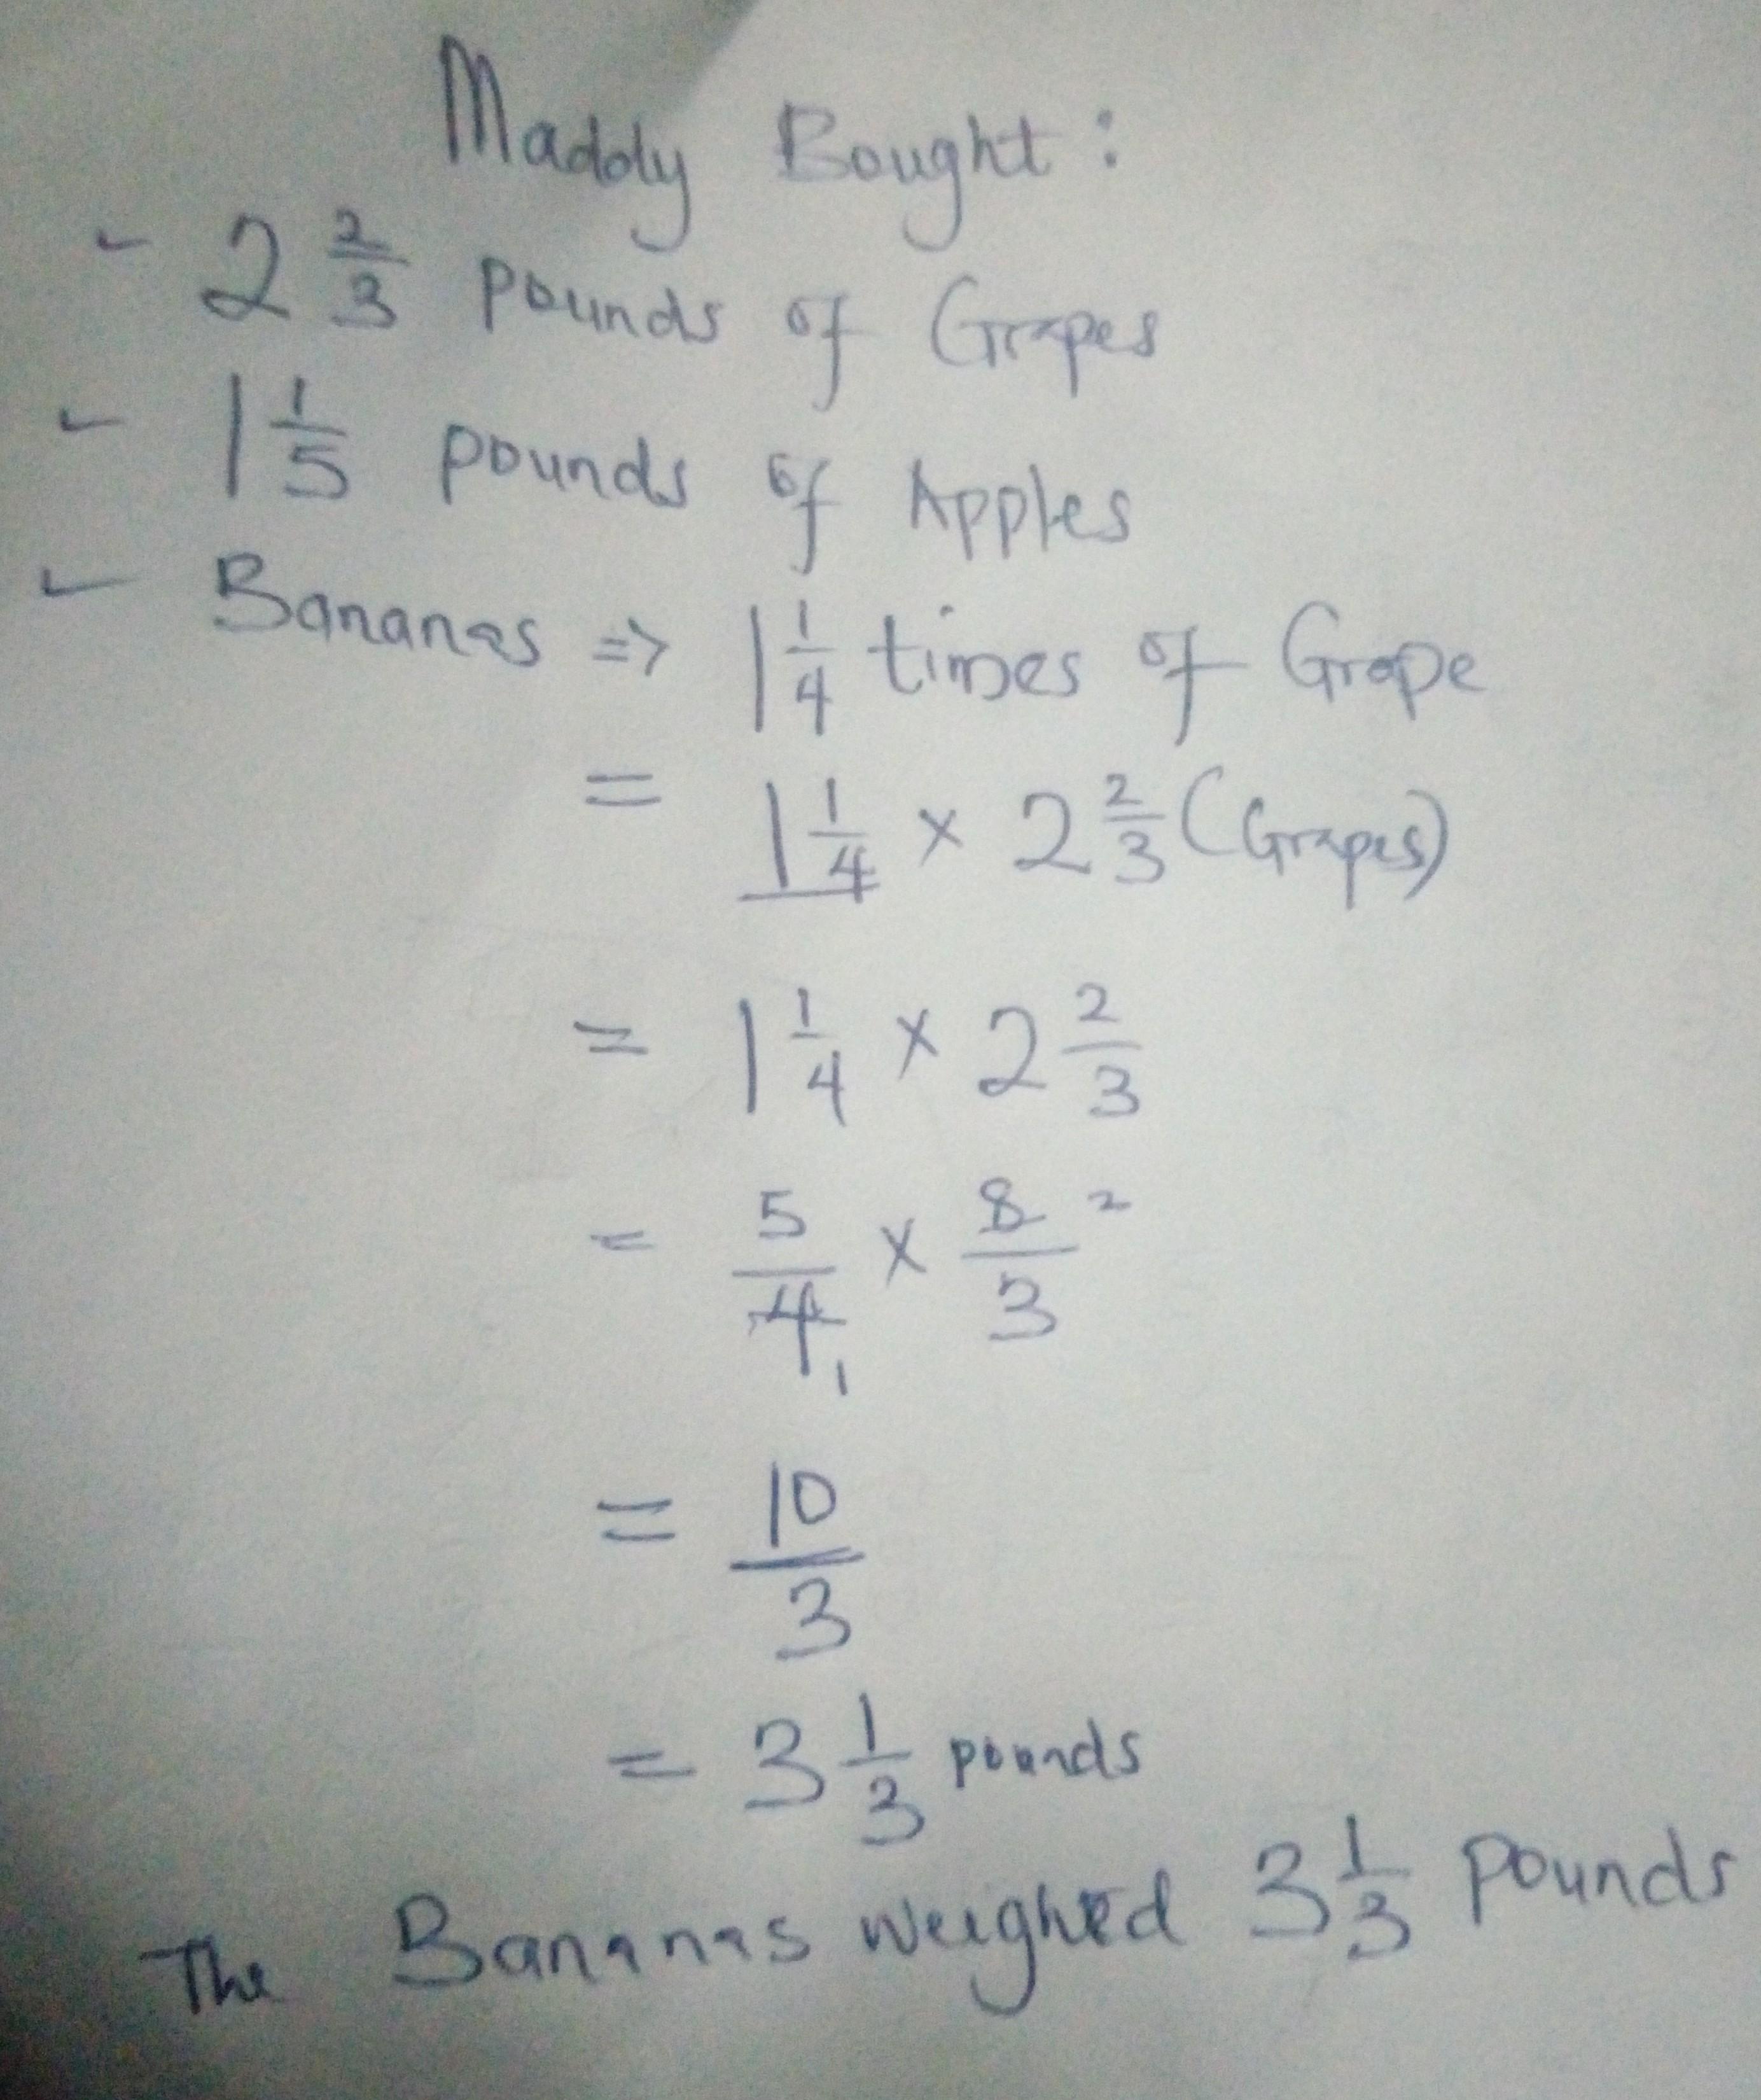 Maddy Bought:
- 2 2/3 pounds of Grapes
- 1 1/5 pounds of Apples
- Bananas => 1 1/4 times of Grape
= 1 1/4 × 2 2/3 (Grapes)
= 1 1/4 × 2 2/3
= 5/4 1 × 8/3 2
= 10/3
= 3 1/3 pounds
The Bananas weighed 3 1/3 pounds